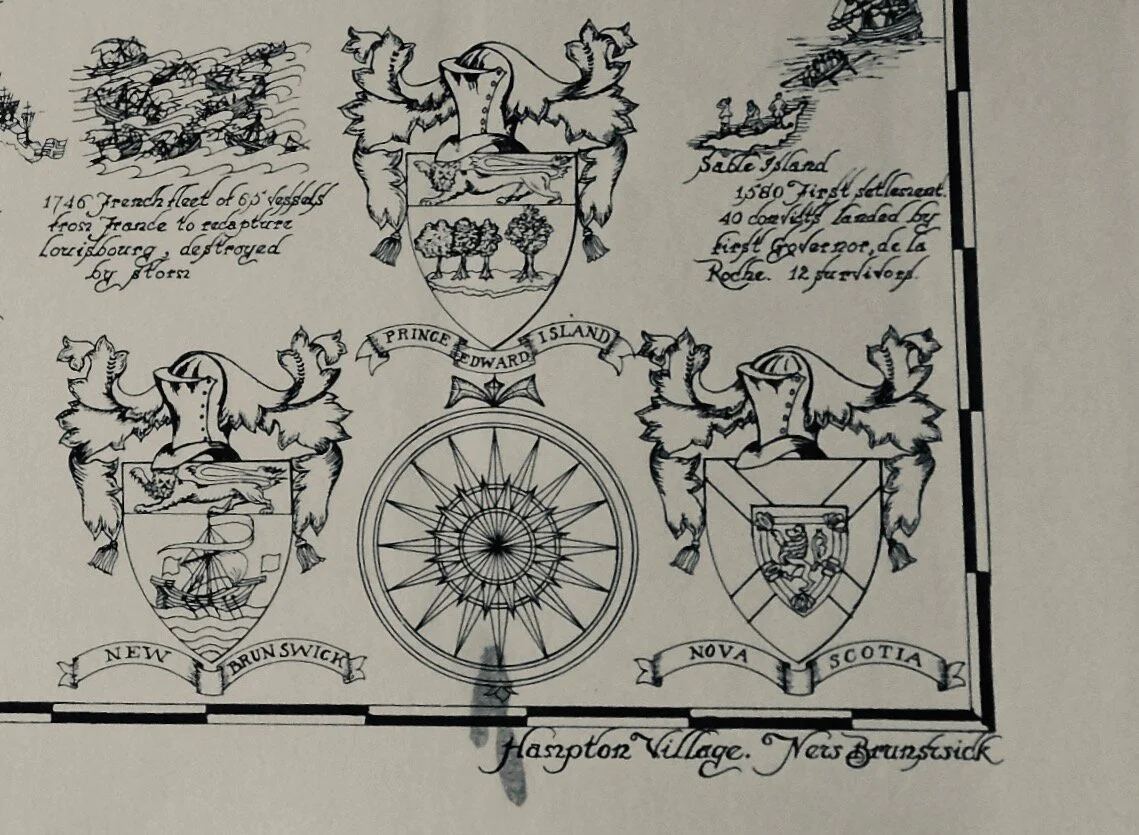 1746 French fleet of 65 vessels
from France to recapture
Louisbourg, destroyed
by storm
Sable Island
1580 First setlement.
40 convists landed by
first Governor, de la
Roche. 12 survivors.
PRINCE EDWARD ISLAND
NEW BRUNSWICK
NOVA SCOTIA
Hampton Village. New Brunswick